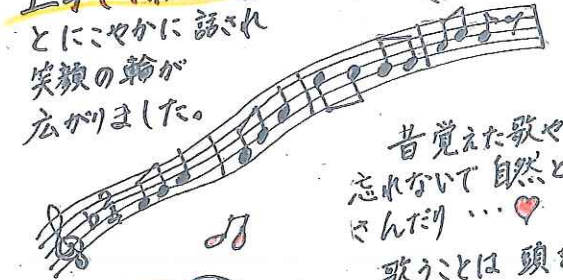 とにこやかに話され
笑顔の輪が
広がりました。
昔覚えた歌や
忘れないで自然と
さんだり…
歌うことは頭を